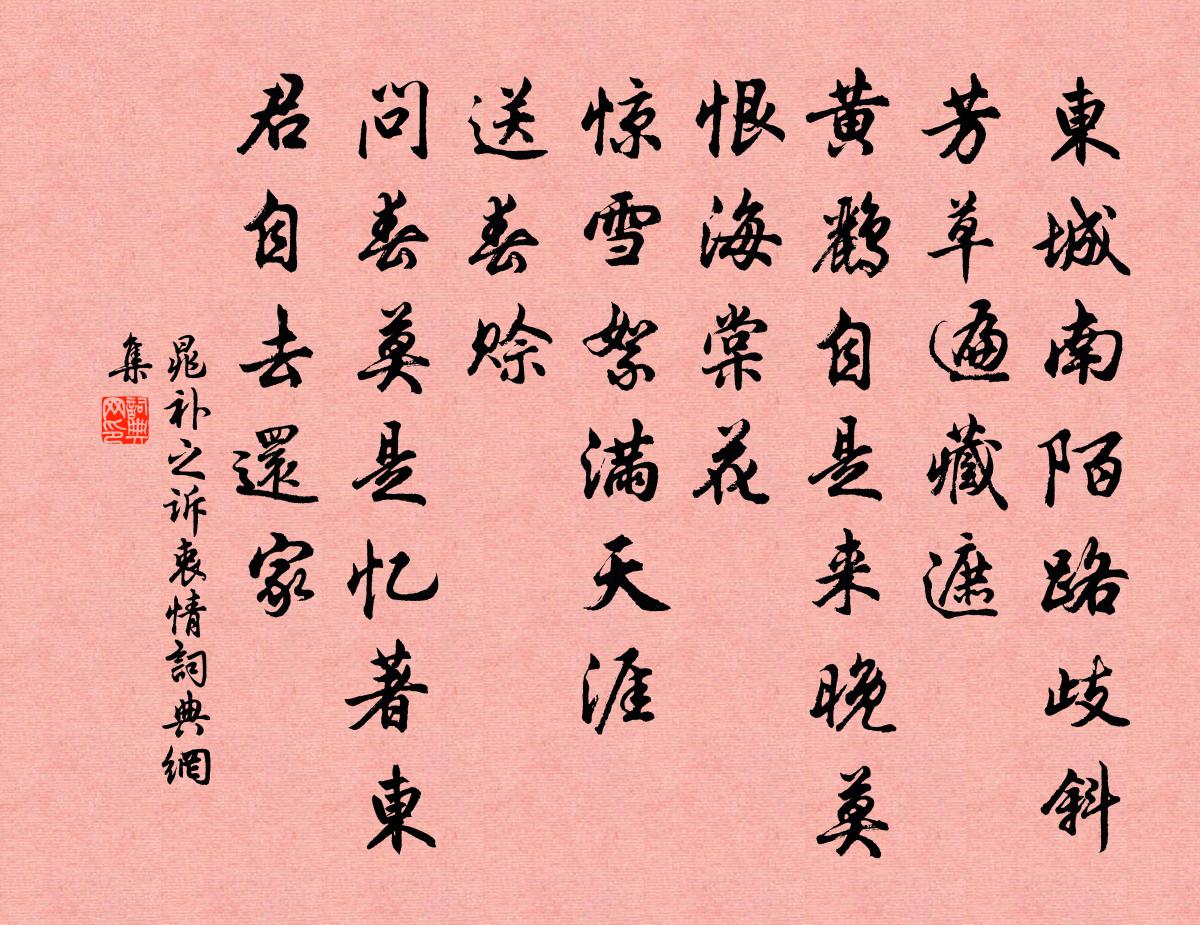 東城南陌路歧斜
芳草遍藏遮
黄鹂自是来晚莫
恨海棠花
惊雪絮满天涯
送春赊
问春莫是忆著東
君自去還家
晁补之诉衷情詞典網
集
詞典网印